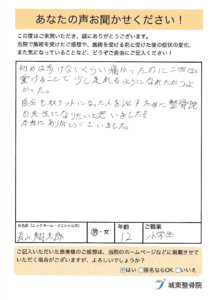 あなたの声お聞かせください！
この度はご来院いただき、誠にありがとうございます。
当院で施術を受けたご感想や、施術を受ける前と受けた後の症状の変化、
また気になっていることなど、どうぞご自由にご記入ください！
初めは歩けないくらい痛かったのに二回目と
受けることで少し走れるようになれたからよ
かった。
自分もねんざになった人を治すために整骨院
の先生になりたいと思いました！
本当にありがとうございました。
お名前（ニックネーム・イニシャル可）
男・女
年齢
12
ご職業
小学生
ご記入いただいた患者様のご感想は、当院のホームページなどに掲載させて
いただく場合がございますが、よろしいでしょうか？
はい
匿名ならOK
いいえ
城東整骨院